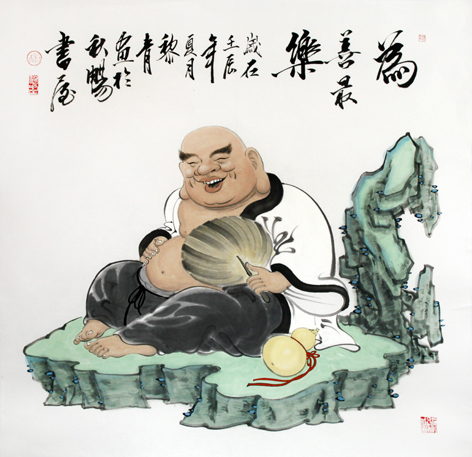 為
善最
樂
歲在
壬辰
年
夏月
黎
青
畫於
秋暢
書屋